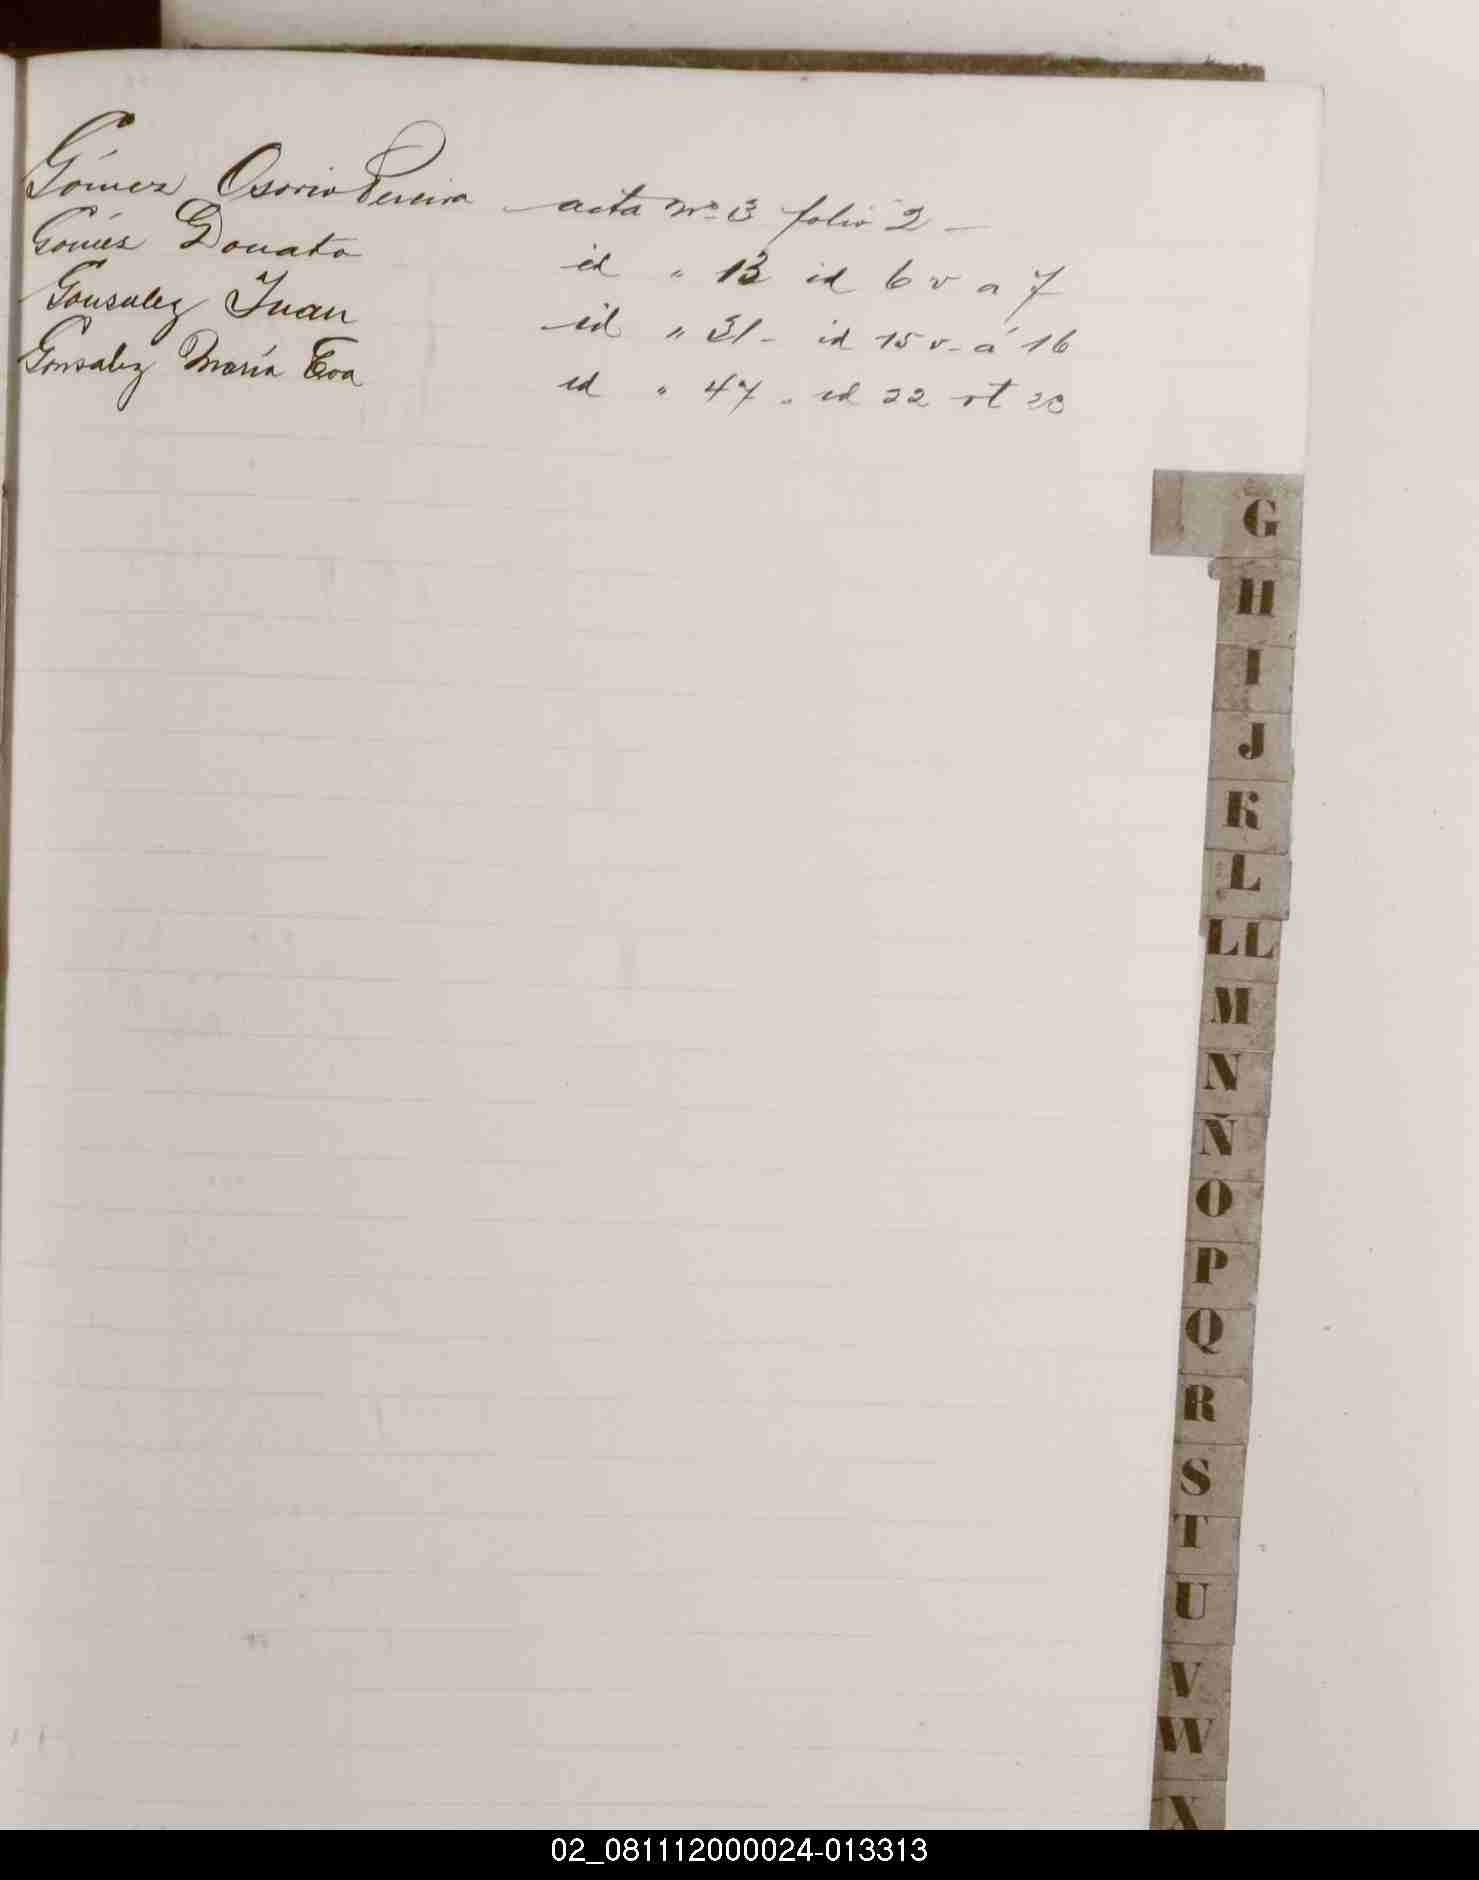 Gómez Osorio Pereira acta Nº 3 folio 2 -
Gómes Donato id " 13 id 6 v a 7
Gonsalez Juan id " 31 - id 15 v - á 16
Gonsalez María Eva id " 47 " id 22 vt 23
G
H
I
J
K
L
LL
M
N
Ñ
O
P
Q
R
S
T
U
V
W
X
02_081112000024-013313